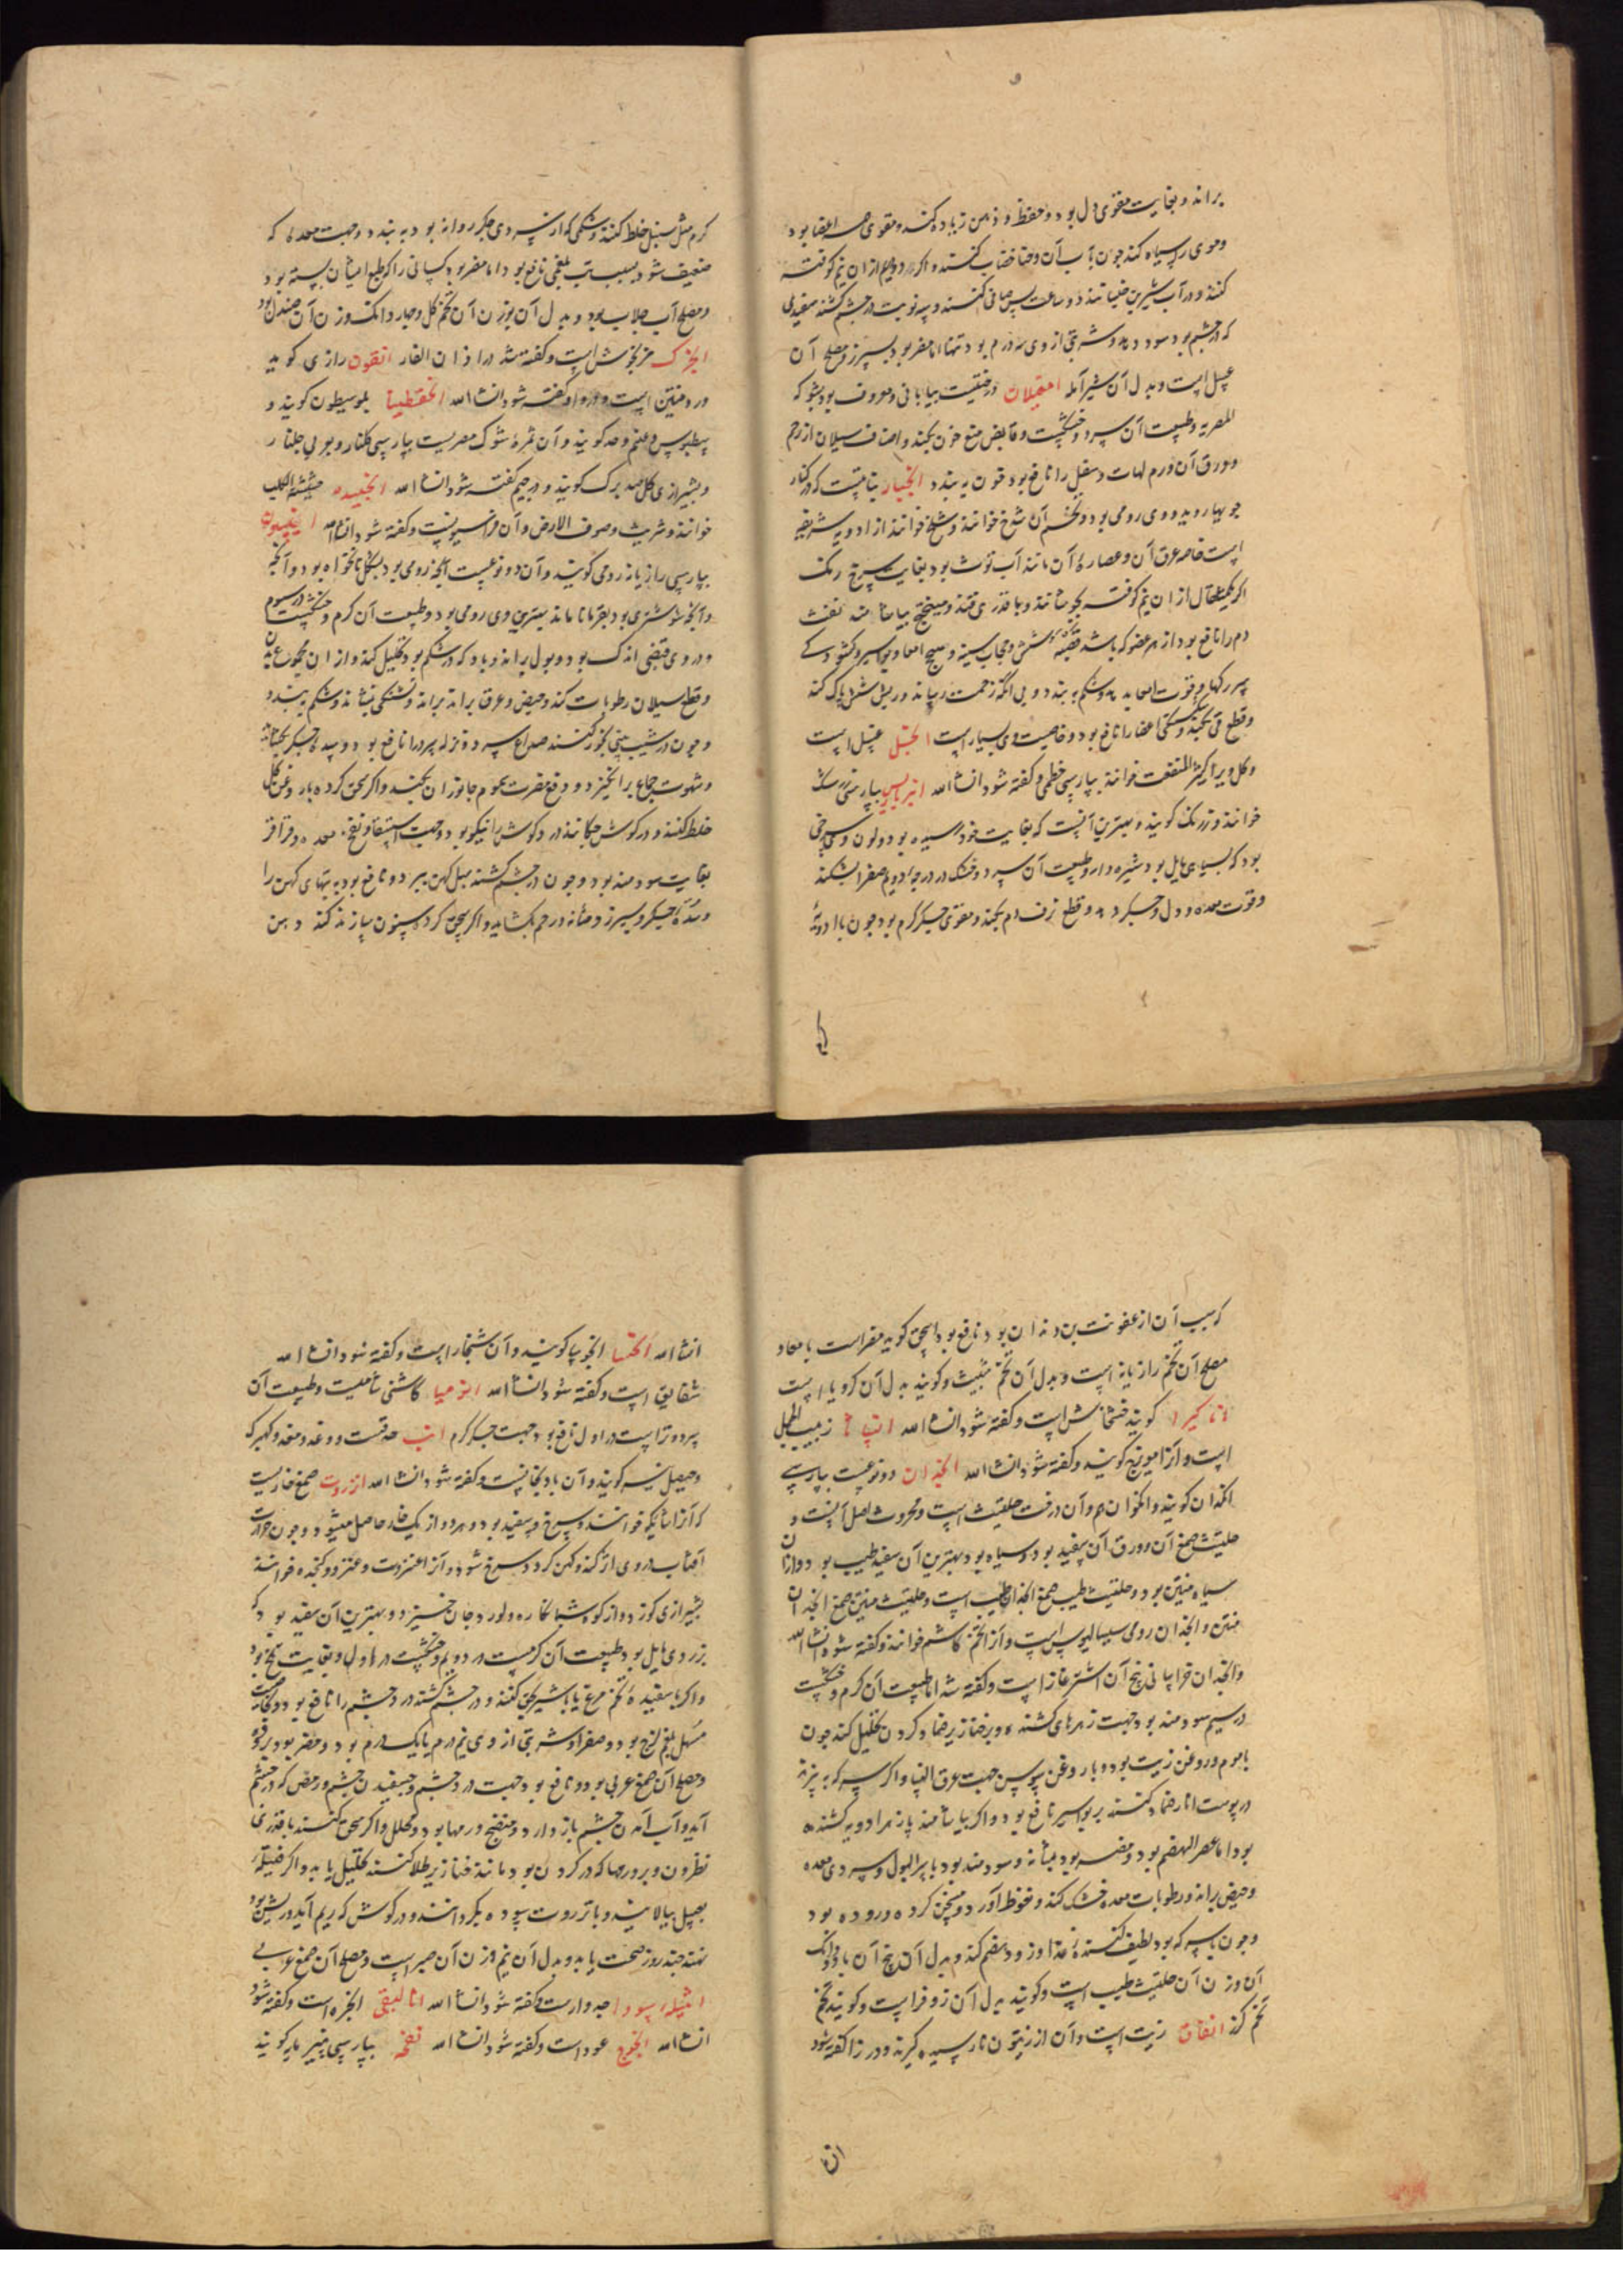 براند و بغایت مقوی دل بود و حفظ و ذهن زیاده کند و مقوی همه اعضا بود
و موی را سیاه کند چون بآب آن و حنا خضاب کنند و اکر دو درم از ان نیم کوفته
کنند و در آب شیرین خیسانند دو ساعت پس صافی کنند و سه نوبت در چشم کشند سفیدی
که در چشم بود سود دهد و شربتی از وی سه درم بود و تنها مضر بود بسپرز و مصلح آن
عسل است و بدل آن شیر آمله امغیلان درختیست بیابانی و معروف بود بشوکه
المصریه و طبیعت آن سرد و خشکست و قابض منع خون بکند و اصناف سیلان از رحم
و ورق آن ورم لهات و سفل را نافع بود و خون به بندد انجبار نباتیست که در کنار
جویها روید و وی رومی بود و تخم آن خوانند و خوانند از ادویه شریفه
است خاصه عرق آن و عصاره آن مانند آب توت بود بغایت سرخ رنک
اکر یکمثقال از ان نیم کوفته بجوشانند و با قدری قند و میبختج بیاشامند نفث
دم را نافع بود از هر عضو که باشد قصبه شش و حجاب سینه و سحج امعا و بواسیر و کشودن
سر رکها و قوت امعا بدهد و شکم به بندد و بی آنکه زحمت رساند و ریش شش پاک کند
و قطع قی بکند و شکستکی اعضا را نافع بود و خاصیت وی بسیار است انجبل عسل است
و کل ویرا کثیر المنفعت خوانند بپارسی خطمی و کفته شود انشا الله انبرباریس بپارسی زرشک
خوانند و زرنک کویند و بهترین آنست که بغایت خود رسیده بود و لون وی سرخی
بود که بسیاهی مایل بود و شیره دار و طبیعت آن سرد و خشک در درجه دویم صفرا بشکند
و قوت معده و دل و جکر دهد و قطع نزف دم بکند و مقوی جکر کرم بود چون با ادویه
کرم مثل سنبل خلط کنند و شکمی که از سردی جکر روانه بود به بندد و جهت معده که
ضعیف شود بسبب تب بلغمی نافع بود اما مضر بود کسانی را که طبع ایشان بسته بود
و مصلح آب جلاب بود و بدل آن بوزن آن تخم کل و چهار دانک وزن آن صندل بود
انجرک مرزنجوش است و کفته شد در اذان الفار انقون رازی کوید
ورد منتن است و در واو کفته شود انشا الله انخقطینا بلوسیطون کویند و
کویند و آن ثمره شوک مصریست بپارسی کلنار و بعربی جلنار
و بشیرازی کل صدبرک کویند و در جیم کفته شود انشا الله انجیده حشیشة الکلب
خوانند و شریث و صوف الارض و آن فراسیونست و کفته شود انشا الله انیسون
بپارسی رازیانه رومی کویند و آن دو نوعیست آنچه رومی بود بشکل نانخواه بود و آنچه
و آنچه شوشتری بود بقرمانا ماند بهترین وی رومی بود و طبیعت آن کرم و خشکست در سیوم
و در وی قبضی اندک بود و بول براند و باد که در شکم بود تحلیل کند و از ان مجموع بدن
و قطع سیلان رطوبات کند و حیض و عرق براند براند و تشنکی بنشاند و شکم ببندد
و چون در شیب بینی بخور کنند صداع سرد و نزله سرد را نافع بود و سده جکر بکشاید
و شهوت جماع برانکیزد و دفع مضرت سموم جانوران بکند و اکر سحق کرده با روغن کل
خلط کنند و در کوش چکانند درد کوش را نیکو بود و جهت استسقا و نفخ معده و قراقر
بغایت سودمند بود و چون در چشم کشند سبل کهن ببرد و نافع بود به تبهای کهن را
و سده جکر و سپرز و مثانه و رحم بکشاید و اکر سحق کرده سنون سازند کند دهن
که سبب آن از عفونت بن دندان بود نافع بود اسحق کوید مضر است بامعاء و
مصلح آن تخم رازیانه است و بدل آن تخم شبت و کویند بدل آن کرویا است
اناکیرا کویند خشخاش است و کفته شود انشا الله زبیب الجبل
است و آنرا میویزج کویند و کفته شود انشا الله انجدان دو نوعیست بپارسی
انکدان کویند و انکوان هم و آن درخت حلتیت است و محروث اصل آنست و
حلتیت صمغ آن و ورق آن سفید بود و سیاه بود و بهترین آن سفید طیب بود و از آن
سیاه منتن بود و حلتیت طیب صمغ انجدان طیب است و حلتیت منتن صمغ انجدان
منتن و انجدان رومی سیسالیوس است و آنرا تخم کاشم خوانند و کفته شود انشا الله
و انجدان خراسانی بیخ آن اشترغاز است و کفته شد اما طبیعت آن کرم و خشکست
در سیم سودمند بود جهت زهرهای کشنده و بر خنازیر ضماد کردن تحلیل کند چون
با موم و روغن زیت بود و با روغن سوسن جهت عرق النسا و اکر سرکه بپزند
در پوست انار ضماد کنند بر بواسیر نافع بود و اکر بیاشامند پازهر ادویه کشنده
بود اما عسر الهضم بود و مضر بود بمثانه و سودمند بود با سر البول و سردی معده
و حیض براند و رطوبات معده خشک کند و نعوظ آورد و مسخن کرده و روده بود
و چون با سرکه بود لطیف کننده غذا و زود هضم کند و بدل آن بیخ آن با دو دانک
آن وزن آن حلتیت طیب است و کویند بدل آن زوفرا است و کویند تخم
تخم کند انفاق زیت است و آن از زیتون نارسیده کیرند و در زا کفته شود
انشا الله انخسا انخوسا کویند و آن شنجار است و کفته شود انشا الله
شقایق است و کفته شود انشا الله انوقیا کاشنی شامیست و طبیعت آن
سرد و تر است در اول نافع بود جهت جکر کرم انب حدقست و وغد و مغد و کهرکه
و حیصل نیز کویند و آن بادنجانست و کفته شود انشا الله انزروت صمغ خاریست
که آنرا شایکه خوانند و سرخ و سفید بود و هر دو از یک خار حاصل میشود و چون حرارت
آفتاب در وی اثر کند و کهن کردد سرخ شود و آنرا عنزروت و عنزرو و کنجده خوانند
بشیرازی کوزد و از کوه شبانکاره و لوردجان خیزد و بهترین آن سفید بود که
بزردی مایل بود طبیعت آن کرمست در دویم و خشکست در اول و بغایت تلخ بود
و اکر با سفیده تخم مرغ یا با شیر سحق کنند و در چشم کشند درد چشم را نافع بود و خاصیت
مسهل بلغم لزج بود و صفرا و شربتی از وی نیم درم تا یک درم بود و مضر بود بروده
و مصلح آن صمغ عربی بود و نافع بود جهت درد چشم و چسبیدن چشم و رمص که در چشم
آید و آب آمدن چشم باز دارد و منضج ورمها بود و محلل و اکر سحق کنند با قدری
نطرون و بر ورمها که در کردن بود مانند خنازیر طلا کنند تحلیل یابد و اکر فتیله
بعسل بیالایند و با انزروت سوده بکردانند و در کوش که ریم آید و ریش بود
نهند چند روز صحت یابد و بدل آن نیم وزن آن صبر است و مصلح آن صمغ عربی
انتله سودا جدوار است و کفته شود انشا الله انالیقی انجره است و کفته شود
انشا الله انجوج عود است و کفته شود انشا الله انفحه بپارسی پنیر مایه کویند